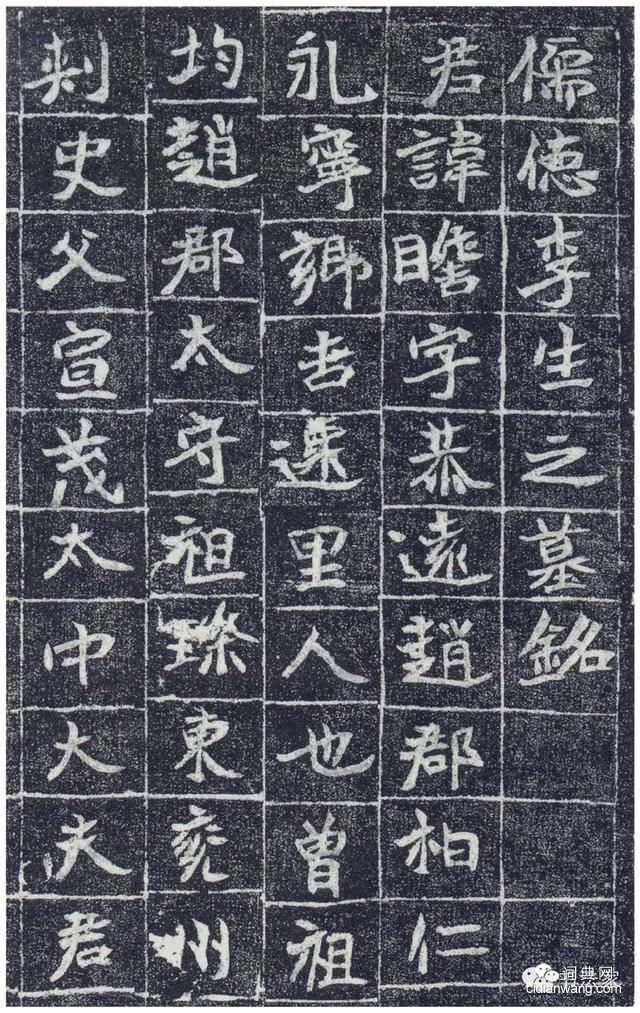 儒德李生之墓銘
君諱瞻字恭遠趙郡柏仁
永寧鄉吉遷里人也曾祖
均趙郡太守祖璨東兗州
刺史父宣茂太中大夫君
词典网
cidianwang.com